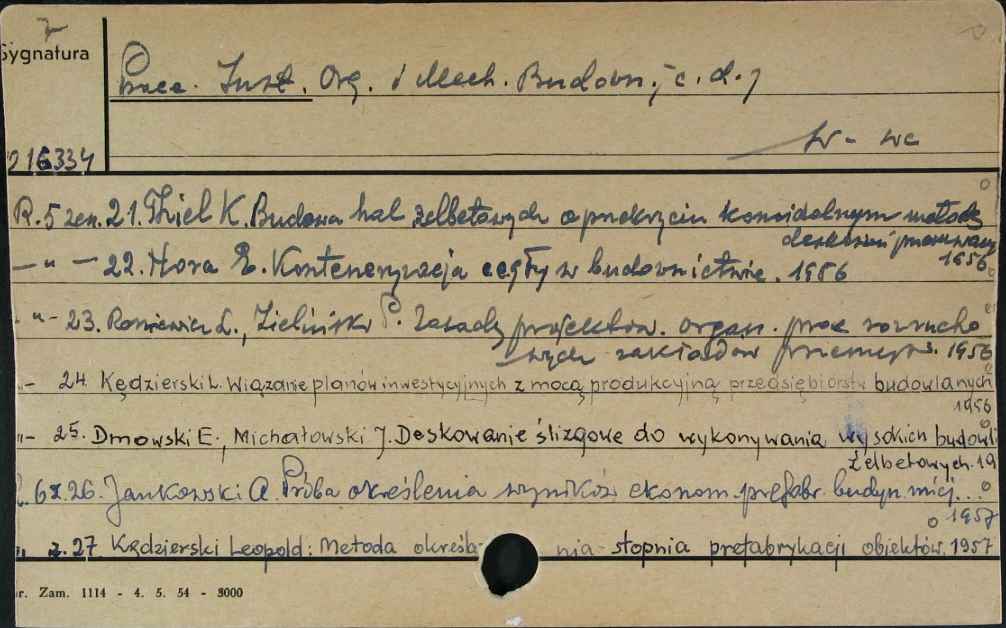 Sygnatura
Prace. Inst. Org. i Mech. Budown. /c. d./
216334
W-wa
R. 5 zesz. 21. Thiel K. Budowa hal żelbetowych o przekryciu konoidalnym metodą
deskowań przesuwany
1956
— " — 22. Hora E. Konteneryzacja cegły w budownictwie. 1956
" - 23. Rosniewicz L., Zieliński P. Zasady projektow. organ. prac rozrucho
wych zakładów przemysł. 1956
- 24. Kędzierski L. Wiązanie planów inwestycyjnych z mocą produkcyjną przedsiębiorstw budowlanych
1956
"- 25. Dmowski E., Michałowski J. Deskowanie ślizgowe do wykonywania wysokich budowli
żelbetowych. 19
R. 6 z. 26. Jankowski A. Próba określenia wyników ekonom. prefabr. budyn. miej...
1957
" z. 27 Kędzierski Leopold: Metoda określa nia stopnia prefabrykacji objektów. 1957
r. Zam. 1114 - 4. 5. 54 - 3000